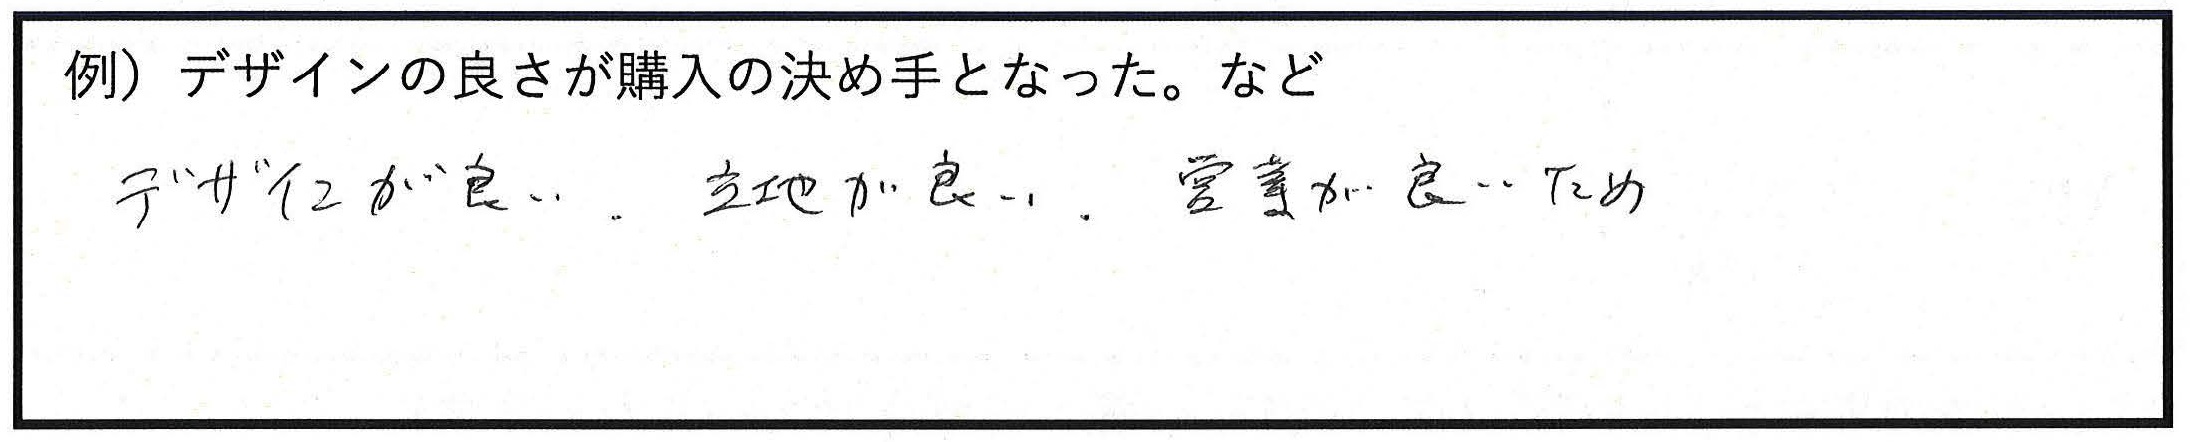 例）デザインの良さが購入の決め手となった。など
デザインが良い．立地が良い．営業が良いため